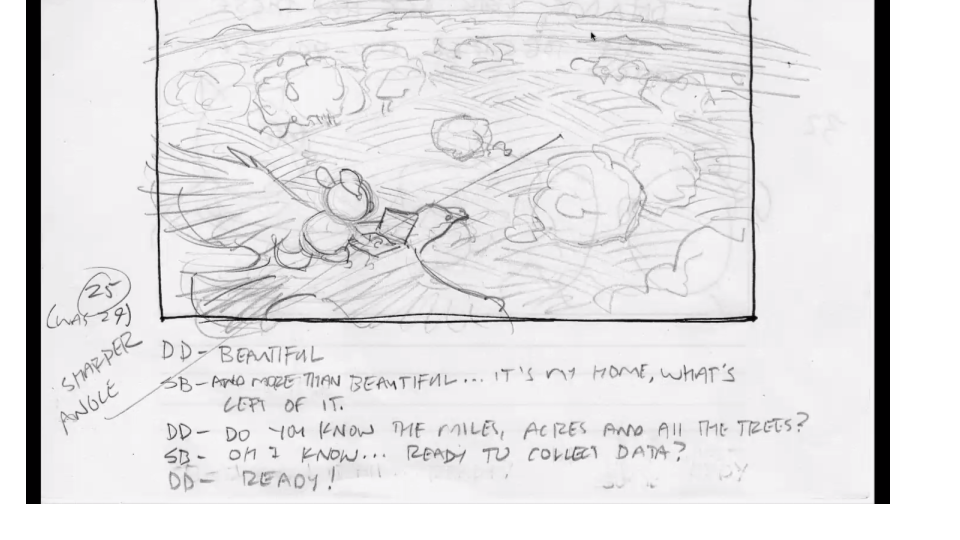 25
(WAS 29)
SHARPER
ANGLE
DD- BEAUTIFUL
SB- AND MORE THAN BEAUTIFUL... IT'S MY HOME, WHAT'S
LEFT OF IT.
DD- DO YOU KNOW THE MILES, ACRES AND All THE TREES?
SB- OH I KNOW... READY TO COLLECT DATA?
DD- READY!